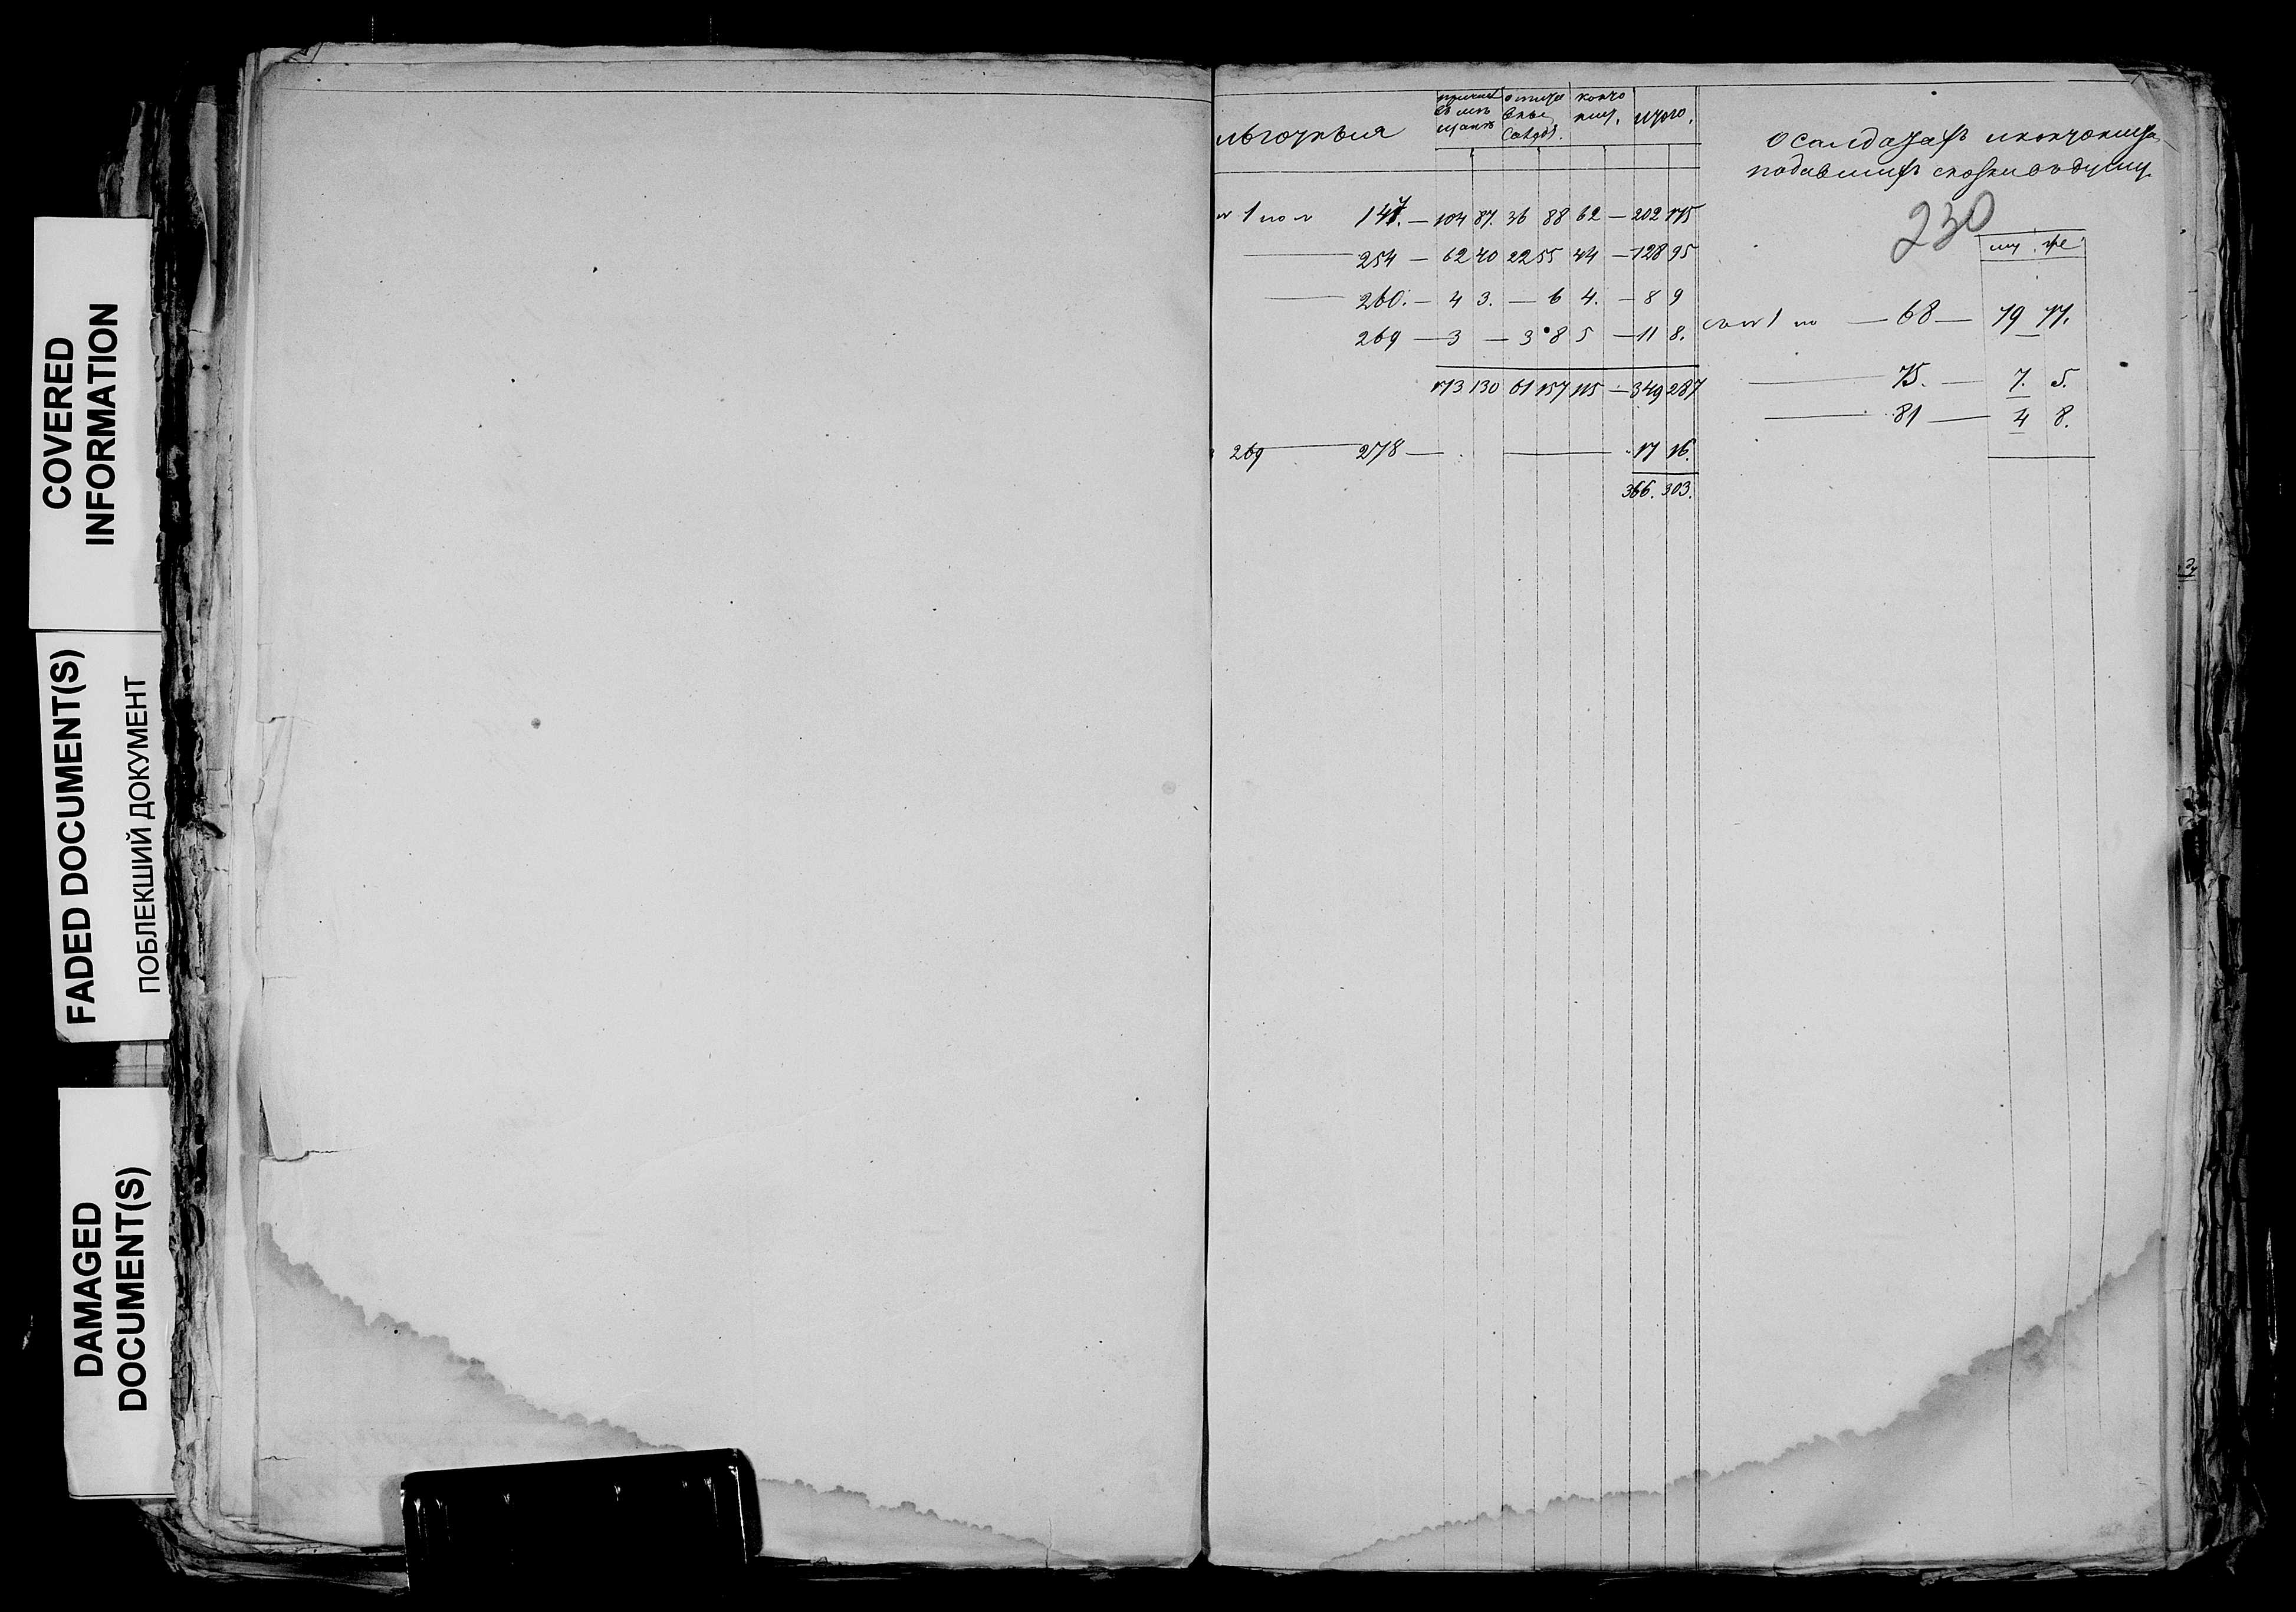 COVERED
INFORMATION
FADED DOCUMENT(S)
ПОБЛЕКШИЙ ДОКУМЕНТ
DAMAGED
DOCUMENT(S)
льготныя
кончо
итого.
1 по 147. — 104 87. 36 88 62 — 202 175
254 — 62 40 22 55 44 — 128 95
260. — 4 3. — 6 4. — 8 9
269 — 3 — 3 8 5 — 11 8.
173 130 61 157 115 — 349 287
269 278 — 17 16.
366. 303.
о салдатахъ
подавшихъ скаски въ думу
230
му же
1 по — 68 — 79 77.
75. — 7. 5.
81 — 4 8.